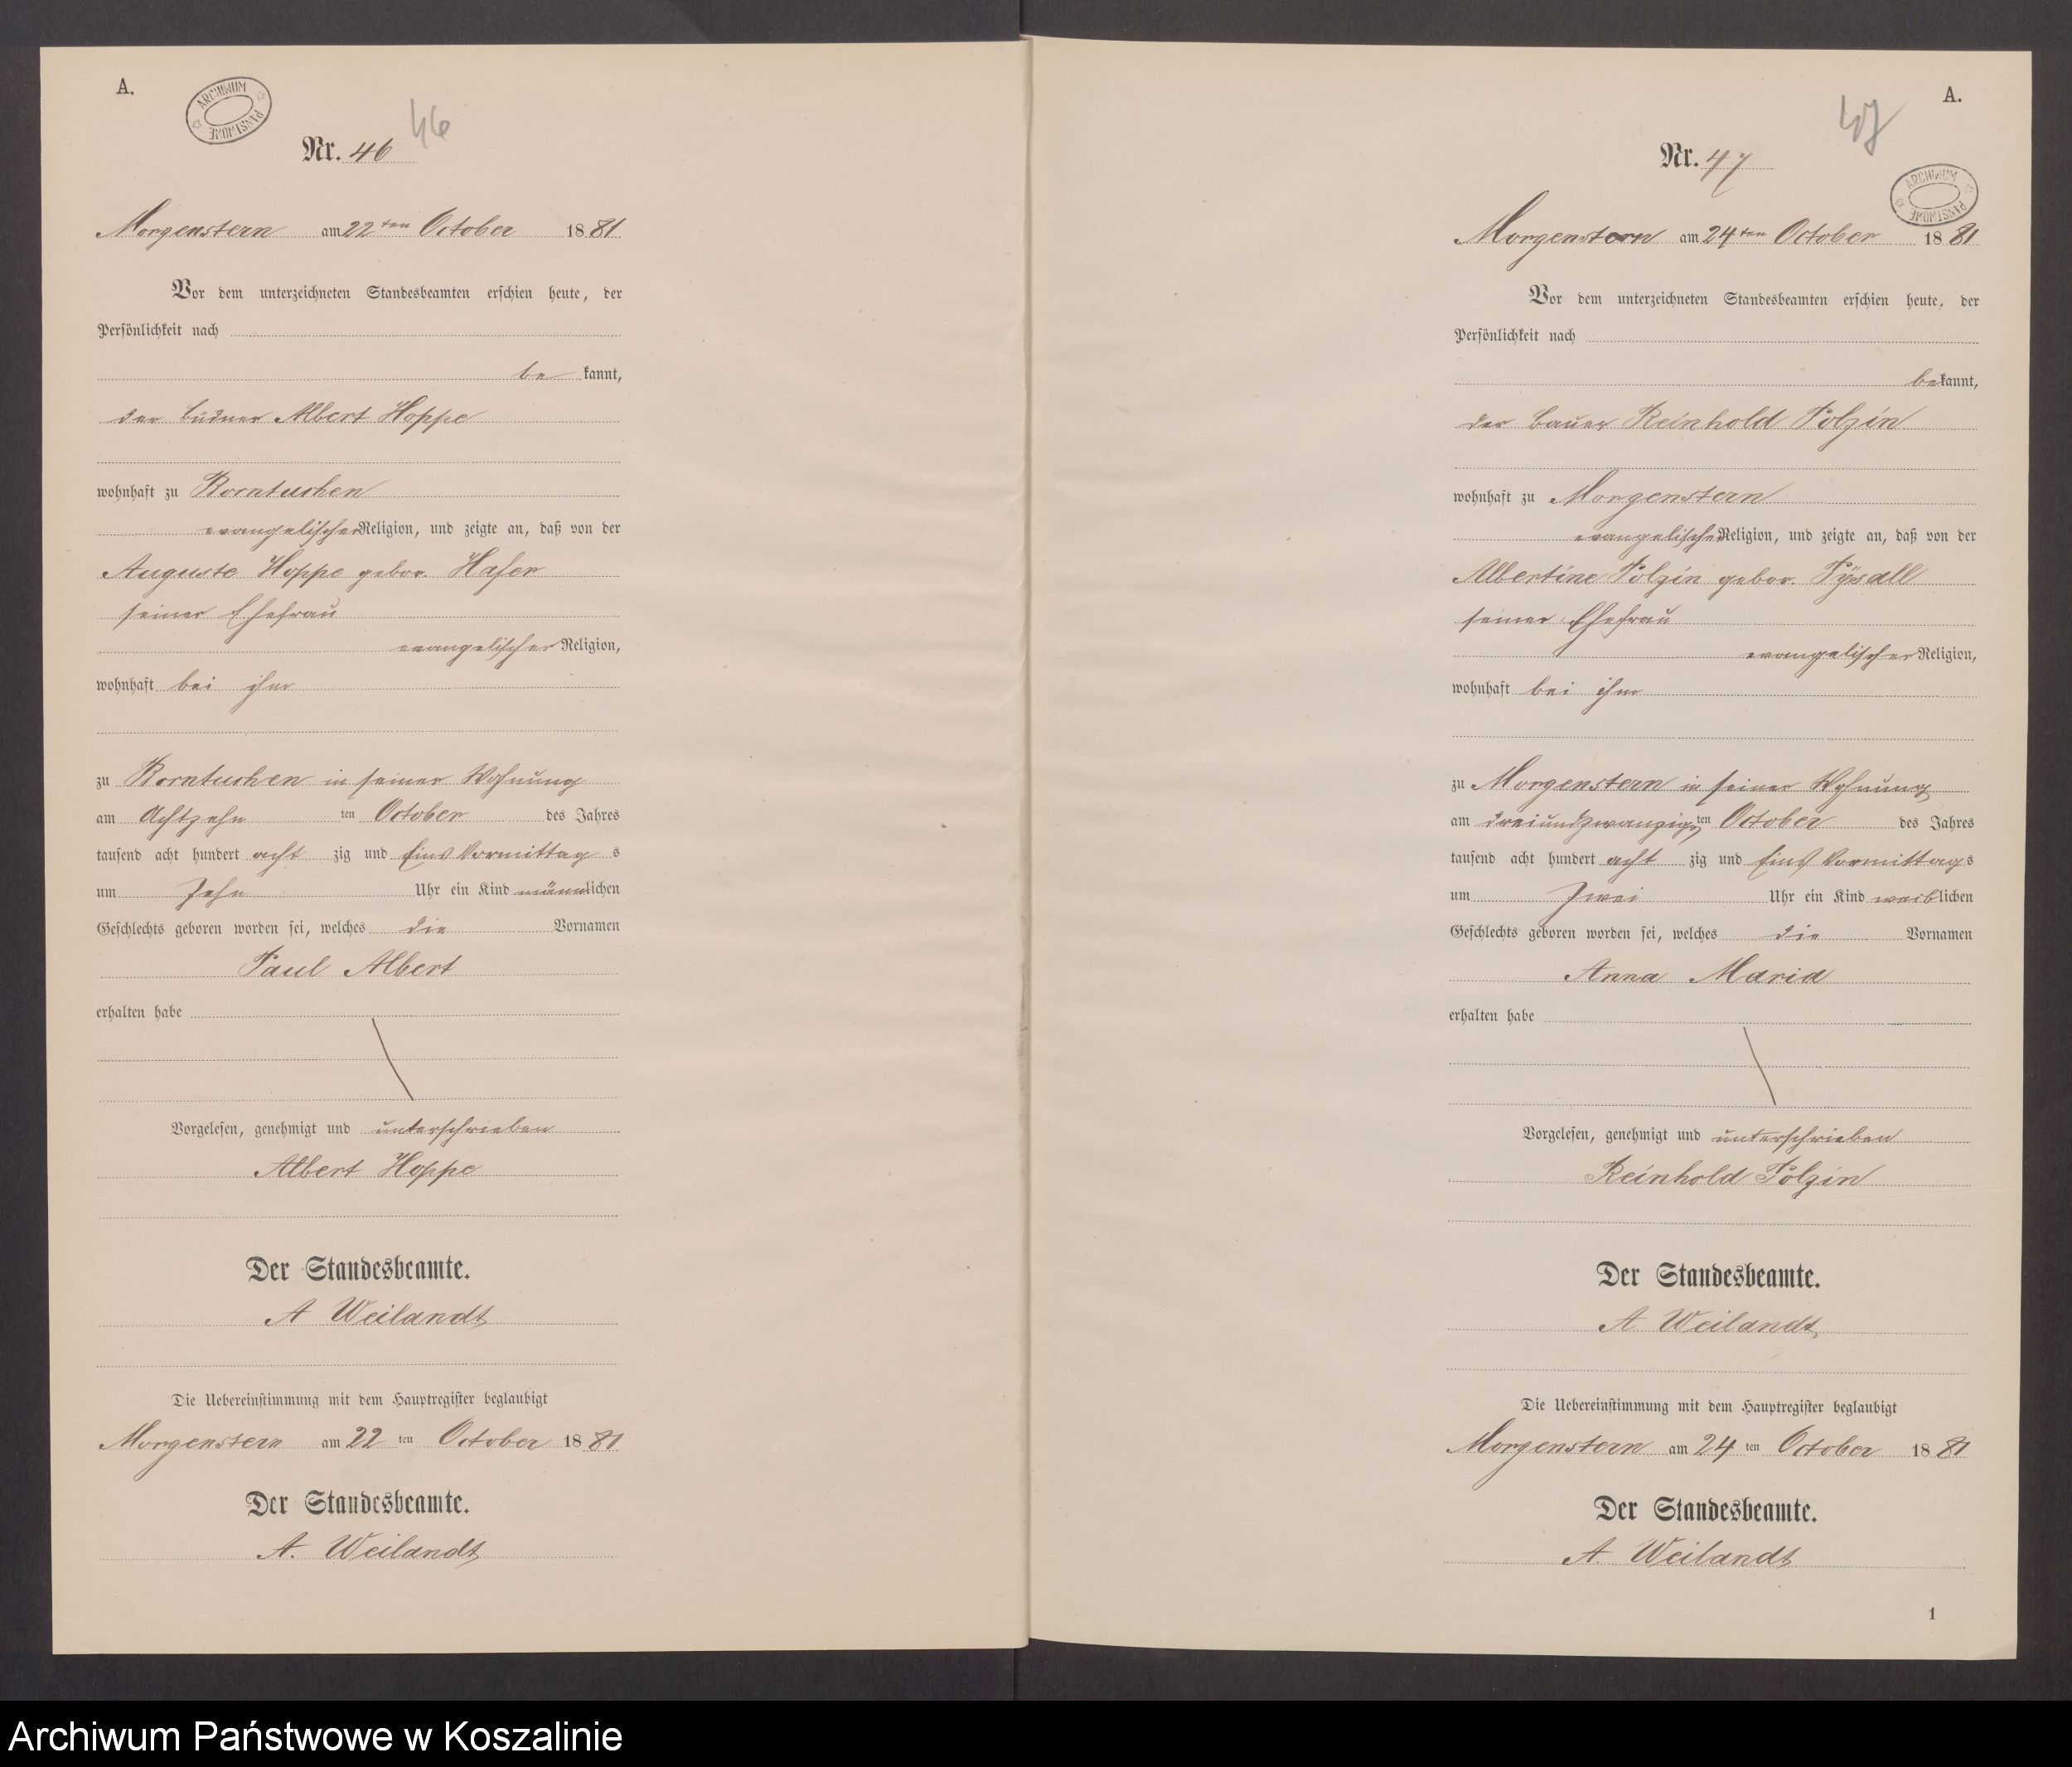 A.
ARCHIWUM PAŃSTWOWE
46
Nr. 46
Morgenstern am 22ten October 1881
Vor dem unterzeichneten Standesbeamten erschien heute, der
Persönlichkeit nach
be kannt,
der Büdner Albert Hoppe
wohnhaft zu Borntuchen
evangelischer Religion, und zeigte an, daß von der
Auguste Hoppe gebor. Hafer
seiner Ehefrau
evangelischer Religion,
wohnhaft bei ihm
zu Borntuchen in seiner Wohnung
am Achtzehn ten October des Jahres
tausend acht hundert acht zig und Eins Vormittag s
um Zehn Uhr ein Kind männlichen
Geschlechts geboren worden sei, welches die Vornamen
Paul Albert
erhalten habe
Vorgelesen, genehmigt und unterschrieben
Albert Hoppe
Der Standesbeamte.
A Weilandt
Die Uebereinstimmung mit dem Hauptregister beglaubigt
Morgenstern am 22 ten October 1881
Der Standesbeamte.
A. Weilandt
A.
47
Nr. 47
ARCHIWUM PAŃSTWOWE
Morgenstern am 24ten October 1881
Vor dem unterzeichneten Standesbeamten erschien heute, der
Persönlichkeit nach
bekannt,
der Bauer Reinhold Polzin
wohnhaft zu Morgenstern
evangelischer Religion, und zeigte an, daß von der
Albertine Polzin gebor.
seiner Ehefrau
evangelischer Religion,
wohnhaft bei ihm
zu Morgenstern in seiner Wohnung
am dreiundzwanzigsten October des Jahres
tausend acht hundert acht zig und Eins Vormittags
um Zwei Uhr ein Kind weiblichen
Geschlechts geboren worden sei, welches die Vornamen
Anna Maria
erhalten habe
Vorgelesen, genehmigt und unterschrieben
Reinhold Polzin
Der Standesbeamte.
A Weilandt
Die Uebereinstimmung mit dem Hauptregister beglaubigt
Morgenstern am 24 ten October 1881
Der Standesbeamte.
A. Weilandt
1
Archiwum Państwowe w Koszalinie